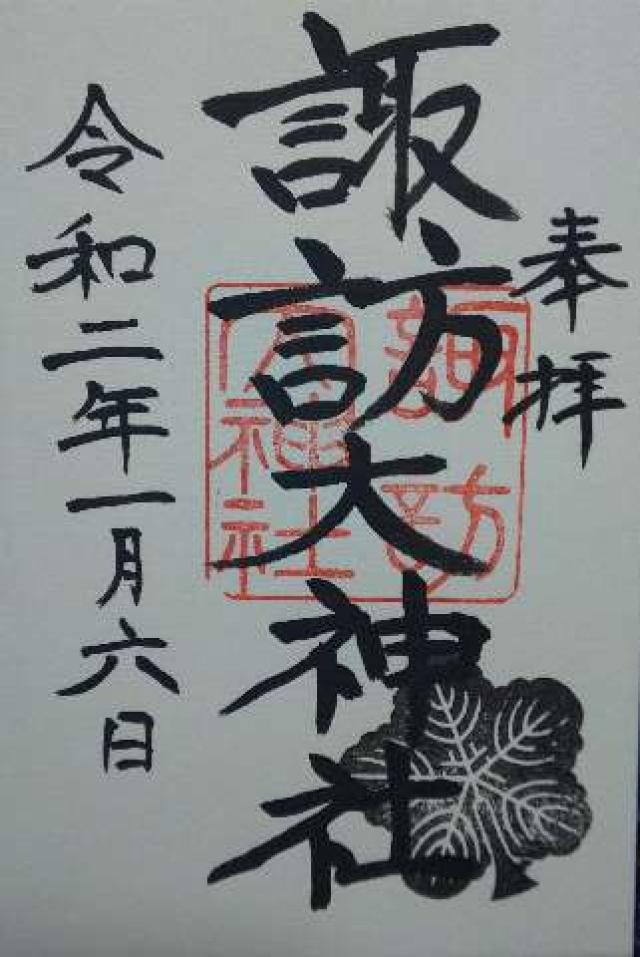 奉拝
諏訪大神社
諏訪
大神社
令和二年一月六日